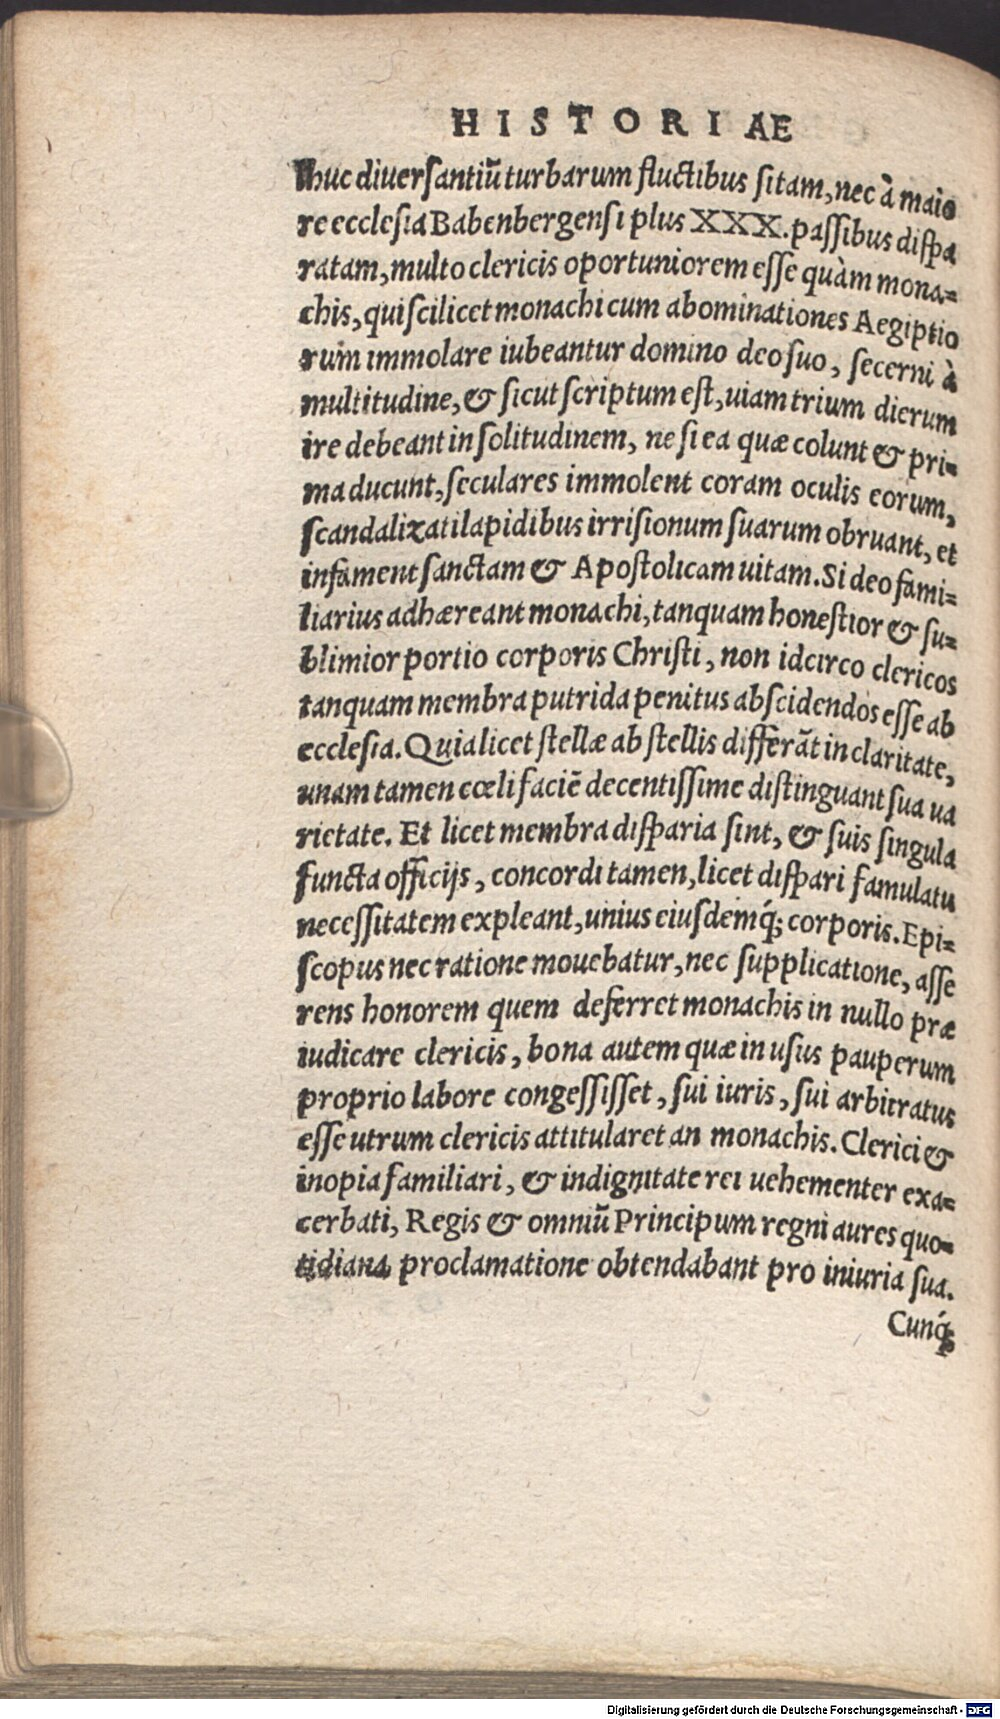 HISTORIAE
huc diuersantiũ turbarum fluctibus sitam, nec à maio
re ecclesia Babenbergensi plus XXX. passibus dispa
ratam, multo clericis oportuniorem esse quàm mona-
chis, qui scilicet monachi cum abominationes Aegiptio
rum immolare iubeantur domino deo suo, secerni à
multitudine, & sicut scriptum est, uiam trium dierum
ire debeant in solitudinem, ne si ea quæ colunt & pri-
ma ducunt, seculares immolent coram oculis eorum,
scandalizati lapidibus irrisionum suarum obruant, et
infament sanctam & Apostolicam uitam. Si deo fami-
liarius adhæreant monachi, tanquam honestior & su-
blimior portio corporis Christi, non idcirco clericos
tanquam membra putrida penitus abscidendos esse ab
ecclesia. Quia licet stellæ ab stellis differãt in claritate,
unam tamen cœli faciẽ decentissime distinguant sua ua
rietate. Et licet membra disparia sint, & suis singula
functa officijs, concordi tamen, licet dispari famulatu
necessitatem expleant, unius eiusdemq́; corporis. Epi-
scopus nec ratione mouebatur, nec supplicatione, asse
rens honorem quem deferret monachis in nullo præ
iudicare clericis, bona autem quæ in usus pauperum
proprio labore congessisset, sui iuris, sui arbitratus
esse utrum clericis attitularet an monachis. Clerici &
inopia familiari, & indignitate rei uehementer exa-
cerbati, Regis & omniũ Principum regni aures quo-
tidiana proclamatione obtendabant pro iniuria sua.
Cunq́;
Digitalisierung gefördert durch die Deutsche Forschungsgemeinschaft - DFG